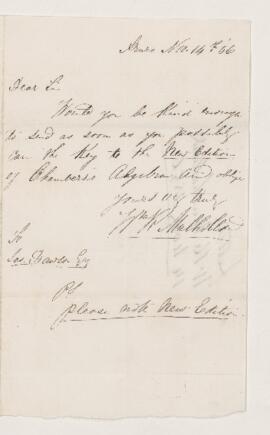 Nov. 14th 66
Dear Sir
Would you be kind enough
to send as soon as you possibly
can the Key to the New Edition
of Chambers's Algebra and oblige
yours very truly
Wm K. Mulholland
To
Jas. Dawson Esq
PS
Please note New Edition.